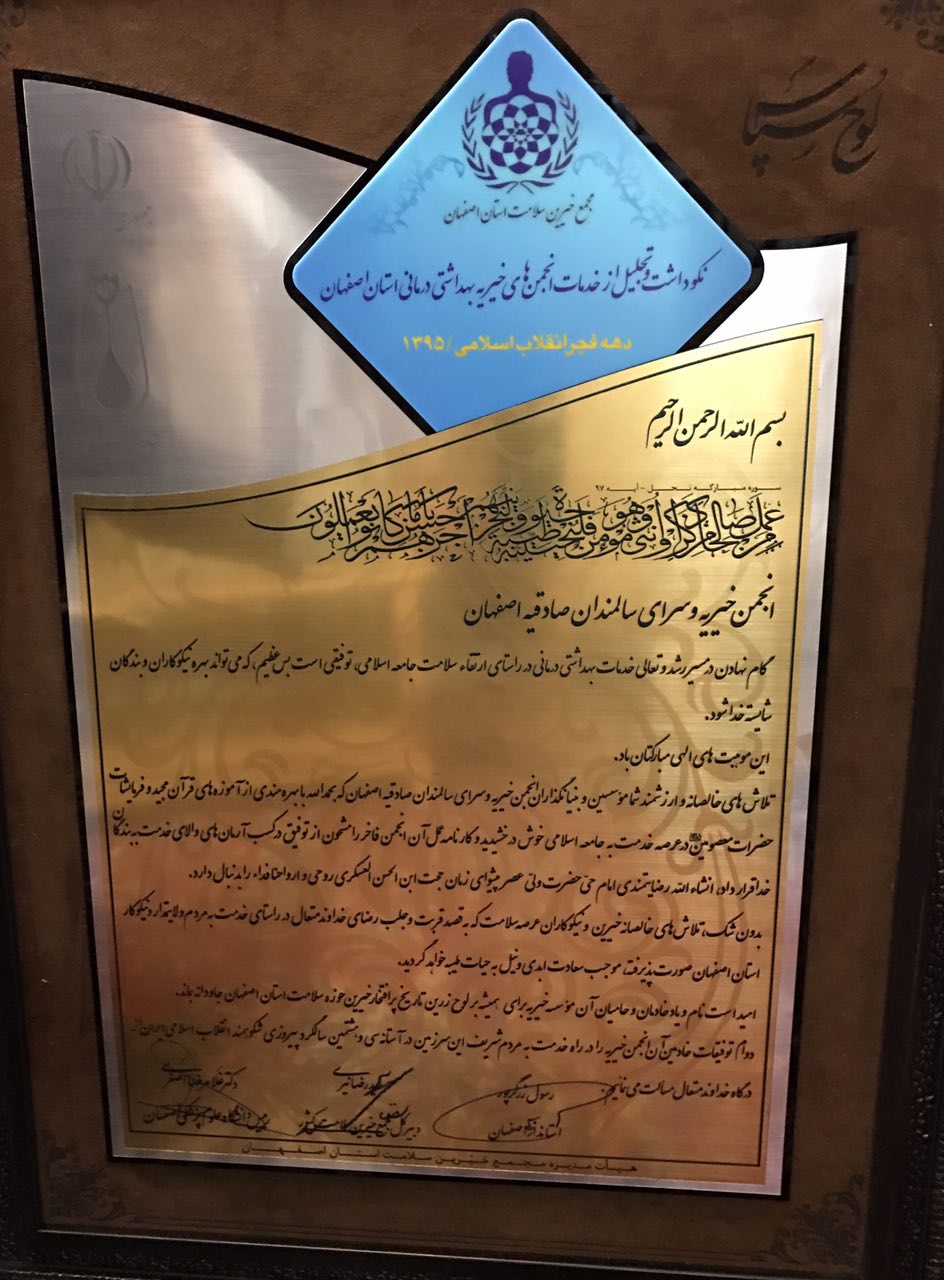 لوح سپاس
مجمع خیرین سلامت استان اصفهان
نکوداشت و تجلیل از خدمات انجمن های خیریه بهداشتی درمانی استان اصفهان
دهه فجر انقلاب اسلامی / ۱۳۹۵
بسم الله الرحمن الرحیم
سوره مبارکه نحل - آیه ۹۷
من عمل صالحا من ذکر او انثی و هو مومن فلنحیینه حیوة طیبة و لنجزینهم اجرهم باحسن ما کانوا یعملون
انجمن خیریه و سرای سالمندان صادقیه اصفهان
گام نهادن در مسیر رشد و تعالی خدمات بهداشتی درمانی در راستای ارتقاء سلامت جامعه اسلامی، توفیقی است بس عظیم، که می تواند بهره نیکوکاران و بندگان
شایسته خدا شود.
این موهبت های الهی مبارکتان باد.
تلاش های خالصانه و ارزشمند شما مؤسسین و بنیانگذاران انجمن خیریه و سرای سالمندان صادقیه اصفهان که بحمدالله با بهره مندی از آموزه های قرآن مجید و فرمایشات
حضرات معصومین در عرصه خدمت به جامعه اسلامی خوش درخشیدید و کارنامه عمل آن انجمن فاخر را مشحون از توفیق در کسب آرمان های والای خدمت به بندگان
خدا قرار داد، انشاءالله رضایتمندی امام حی حضرت ولی عصر پیشوای زمان حجت ابن الحسن العسکری روحی و ارواحنا فداء را بدنبال دارد.
بدون شک، تلاش های خالصانه خیرین و نیکوکاران عرصه سلامت که به قصد قربت و جلب رضای خداوند متعال در راستای خدمت به مردم ولایتمدار و نیکوکار
استان اصفهان صورت پذیرفت، موجب سعادت ابدی و نیل به حیات طیبه خواهد گردید.
امید است نام و یاد خادمان و حامیان آن مؤسسه خیریه برای همیشه بر لوح زرین تاریخ پر افتخار خیرین حوزه سلامت استان اصفهان جاودانه بماند.
دوام توفیقات خادمین آن انجمن خیریه را در راه خدمت به مردم شریف این سرزمین در آستانه سی و هشتمین سالگرد پیروزی شکوهمند انقلاب اسلامی ایران از
درگاه خداوند متعال مسالت می نماییم.
رسول زرگرپور
استاندار اصفهان
سید رضا نیری
دبیر کل مجمع خیرین سلامت کشور
دکتر غلامرضا اصغری
رییس دانشگاه علوم پزشکی اصفهان
هیأت مدیره مجمع خیرین سلامت استان اصفهان